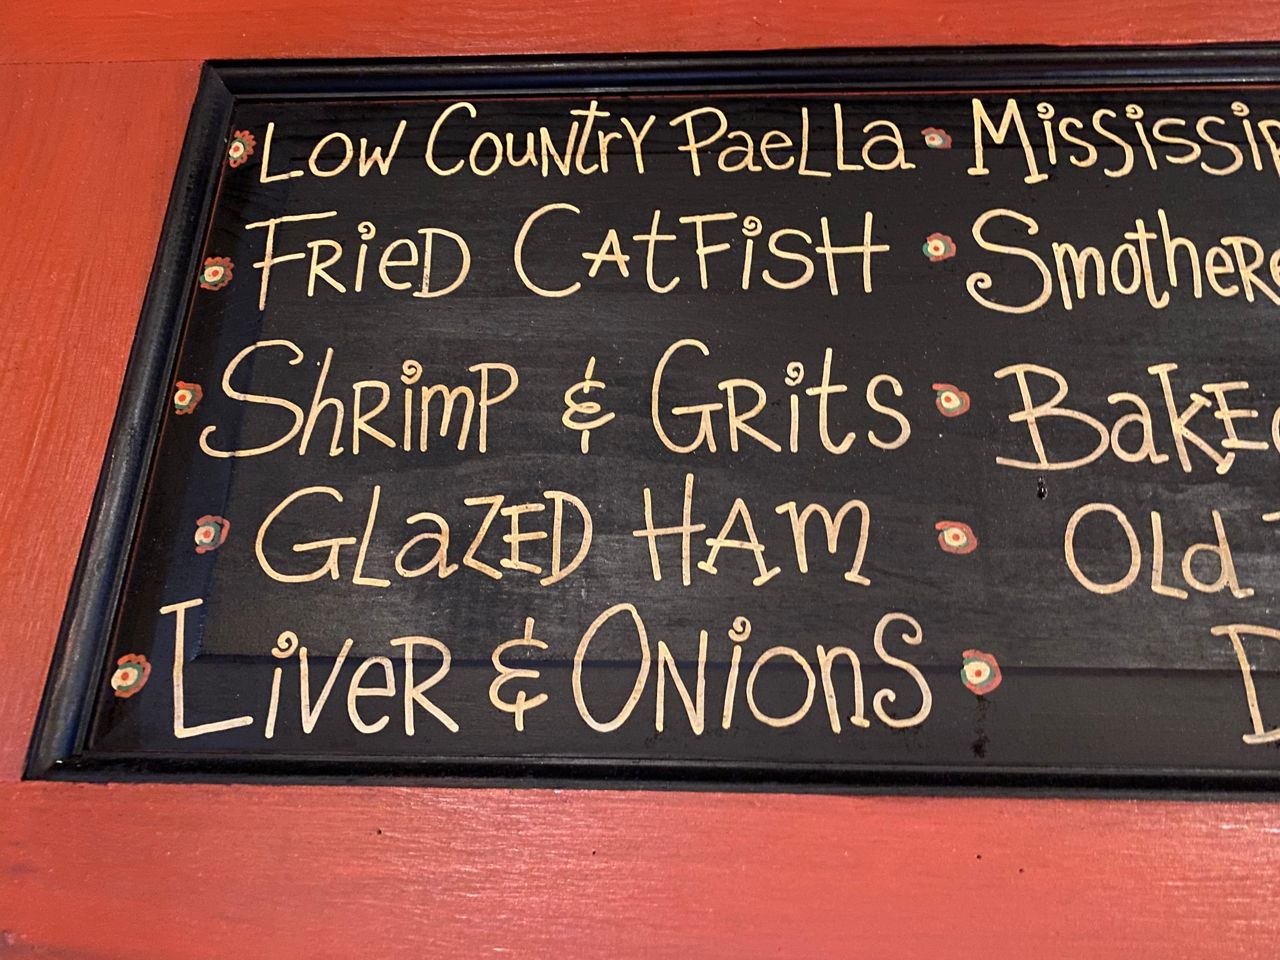 Low Country Paella Mississip
Fried Catfish Smothere
Shrimp & Grits Bake
Glazed Ham Old
Liver & Onions D